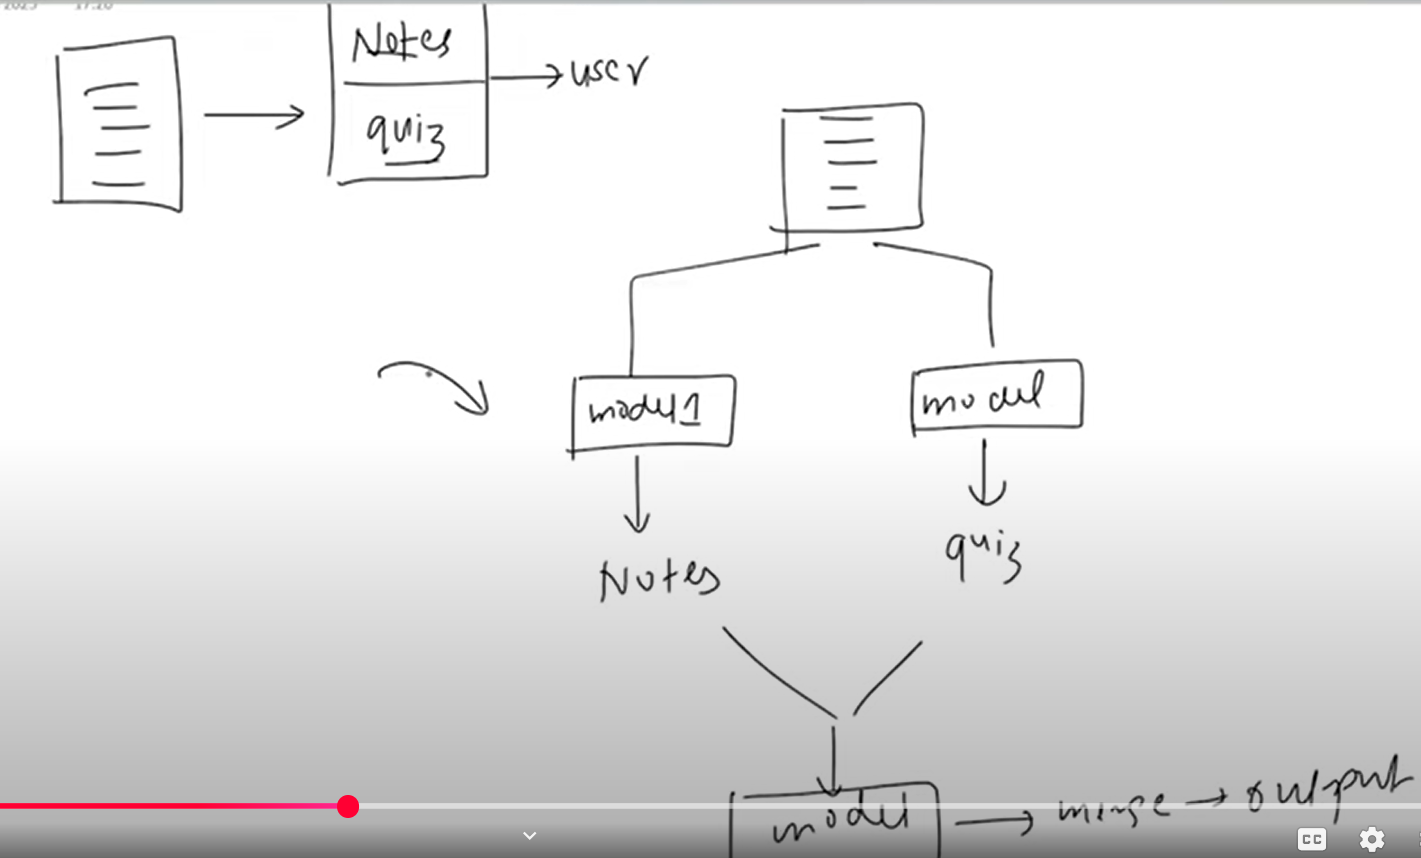 2025 17:20
Notes
quiz
→ user
model1
model
Notes
quiz
model → merge → output
CC